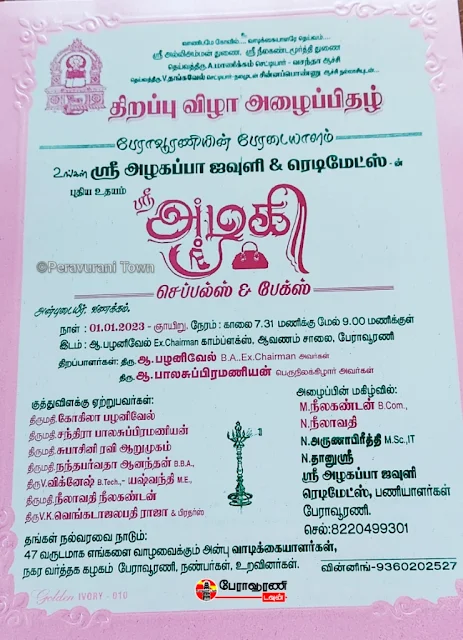 வாணிபமே கோயில்.... வாடிக்கையாளரே தெய்வம்....
ஸ்ரீ அம்பிஅம்மன் துணை ஸ்ரீ நீலகண்டமூர்த்தி துணை
தெய்வத்திரு A.மாணிக்கம் செட்டியார் - வசந்தா ஆச்சி
தெய்வத்திரு V.தங்கவேல் செட்டியார்-தையல்நாயகி சின்னப்பொண்ணு ஆச்சி
திறப்பு விழா அழைப்பிதழ்
பேராவூரணியின் பேரடையாளம்
உங்கள் ஸ்ரீ அழகப்பா ஜவுளி & ரெடிமேட்ஸ் -ன்
புதிய உதயம்
ஸ்ரீ
அழகி
©Peravurani Town
செப்பல்ஸ் & பேக்ஸ்
அன்புடையீர் வணக்கம்,
நாள் : 01.01.2023 - ஞாயிறு, நேரம் : காலை 7.31 மணிக்கு மேல் 9.00 மணிக்குள்
இடம் : ஆ.பழனிவேல் Ex.Chairman காம்ப்ளக்ஸ், ஆவணம் சாலை, பேராவூரணி
திறப்பாளர்கள்: திரு. ஆ.பழனிவேல் B.A., Ex.Chairman அவர்கள்
திரு. ஆ.பாலசுப்பிரமணியன் பெருநிலக்கிழார் அவர்கள்
குத்துவிளக்கு ஏற்றுபவர்கள்:
திருமதி.கோகிலா பழனிவேல்
திருமதி.சந்திரா பாலசுப்பிரமணியன்
திருமதி.சுபாசினி ரவி ஆறுமுகம்
திருமதி.நந்தபர்வதா ஆனந்தன் B.B.A.,
திரு.V.விக்னேஷ் B.Tech.,- யஷ்வந்தி M.E.,
திருமதி.நிலாவதி நீலகண்டன்
திரு.V.K.வெங்கடாஜலபதி ராஜா & பிரதர்ஸ்
அழைப்பின் மகிழ்வில்:
M.நீலகண்டன் B.Com.,
N.நிலாவதி
N.அருணாபிரீத்தி M.Sc.,IT
N.தானுஸ்ரீ
ஸ்ரீ அழகப்பா ஜவுளி
ரெடிமேட்ஸ், பணியாளர்கள்
பேராவூரணி.
செல்:8220499301
தங்கள் நல்வரவை நாடும்:
47 வருடமாக எங்களை வாழவைக்கும் அன்பு வாடிக்கையாளர்கள்,
நகர வர்த்தக கழகம் பேராவூரணி, நண்பர்கள், உறவினர்கள்.
வின்னிங்-9360202527
Golden IVORY - 010
பேராவூரணி
டவுன்